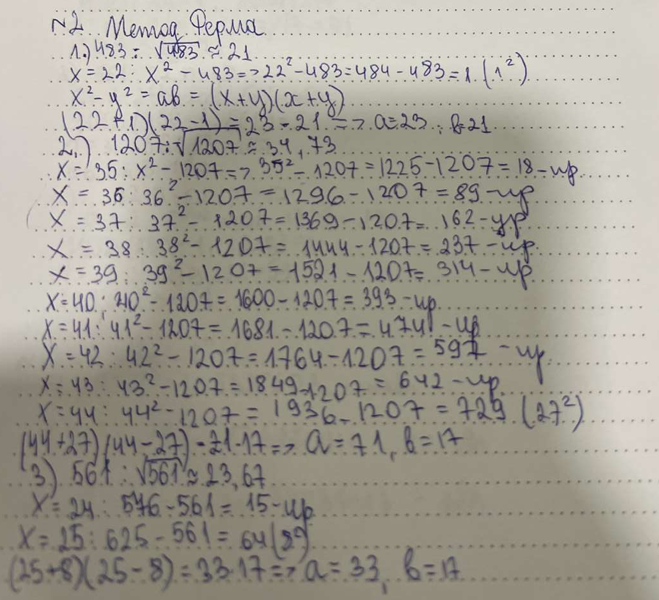 №2 Метод Ферма
1.) 483 : √483 ≈ 21
x = 22 : x² - 483 => 22² - 483 = 484 - 483 = 1. (1²)
x² - y² = ab = (x+y)(x+y)
(22+1)(22-1) = 23 - 21 => a=23 ; b=21
2.) 1207 : √1207 ≈ 34,73
x = 35 : x² - 1207 => 35² - 1207 = 1225 - 1207 = 18 - ир
x = 36 : 36² - 1207 = 1296 - 1207 = 89 - ир
x = 37 : 37² - 1207 = 1369 - 1207 = 162 - ир
x = 38 : 38² - 1207 = 1444 - 1207 = 237 - ир
x = 39 : 39² - 1207 = 1521 - 1207 = 314 - ир
x = 40 : 40² - 1207 = 1600 - 1207 = 393 - ир
x = 41 : 41² - 1207 = 1681 - 1207 = 474 - ир
x = 42 : 42² - 1207 = 1764 - 1207 = 597 - ир
x = 43 : 43² - 1207 = 1849 - 1207 = 642 - ир
x = 44 : 44² - 1207 = 1936 - 1207 = 729 (27²)
(44+27)(44-27) = 71·17 => a = 71, b = 17
3) 561 : √561 ≈ 23,67
x = 24 : 576 - 561 = 15 - ир
x = 25 : 625 - 561 = 64 (8²)
(25+8)(25-8) = 33·17 => a = 33, b = 17